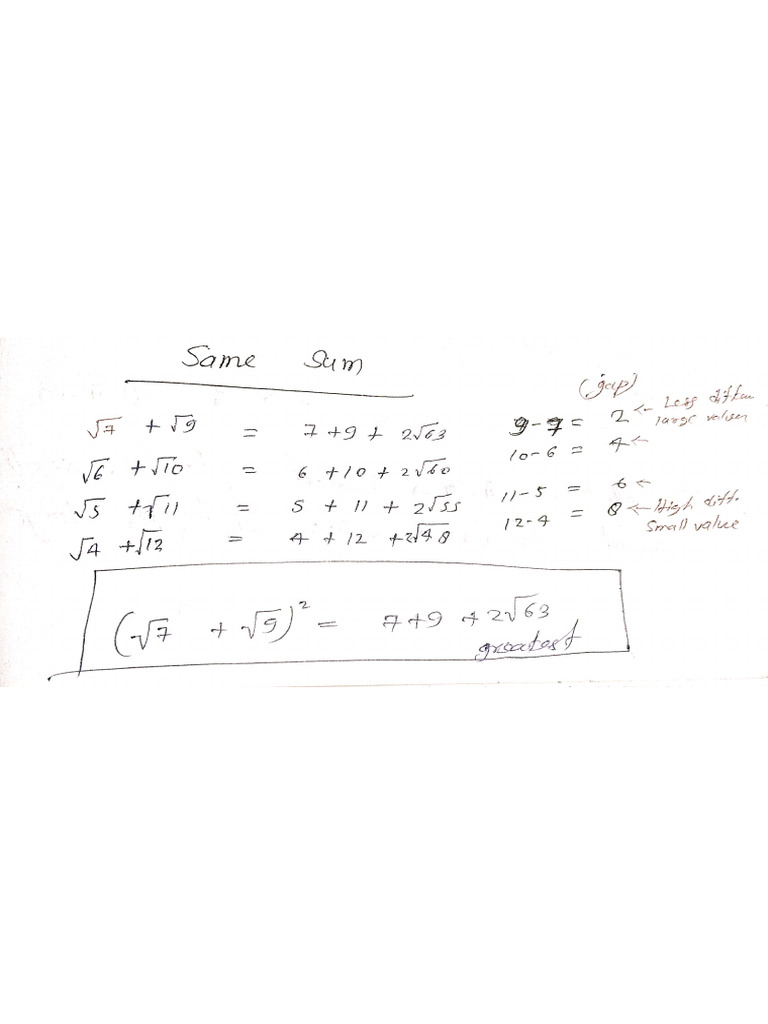 Same Sum
(gap)
√7 + √9 = 7 + 9 + 2√63 9-7 = 2 ← Less
large
√6 + √10 = 6 + 10 + 2√60 10-6 = 4 ←
√5 + √11 = 5 + 11 + 2√55 11-5 = 6 ←
√4 + √12 = 4 + 12 + 2√48 12-4 = 8 ← High diff.
Small value
(√7 + √9)² = 7+9 + 2√63
greatest